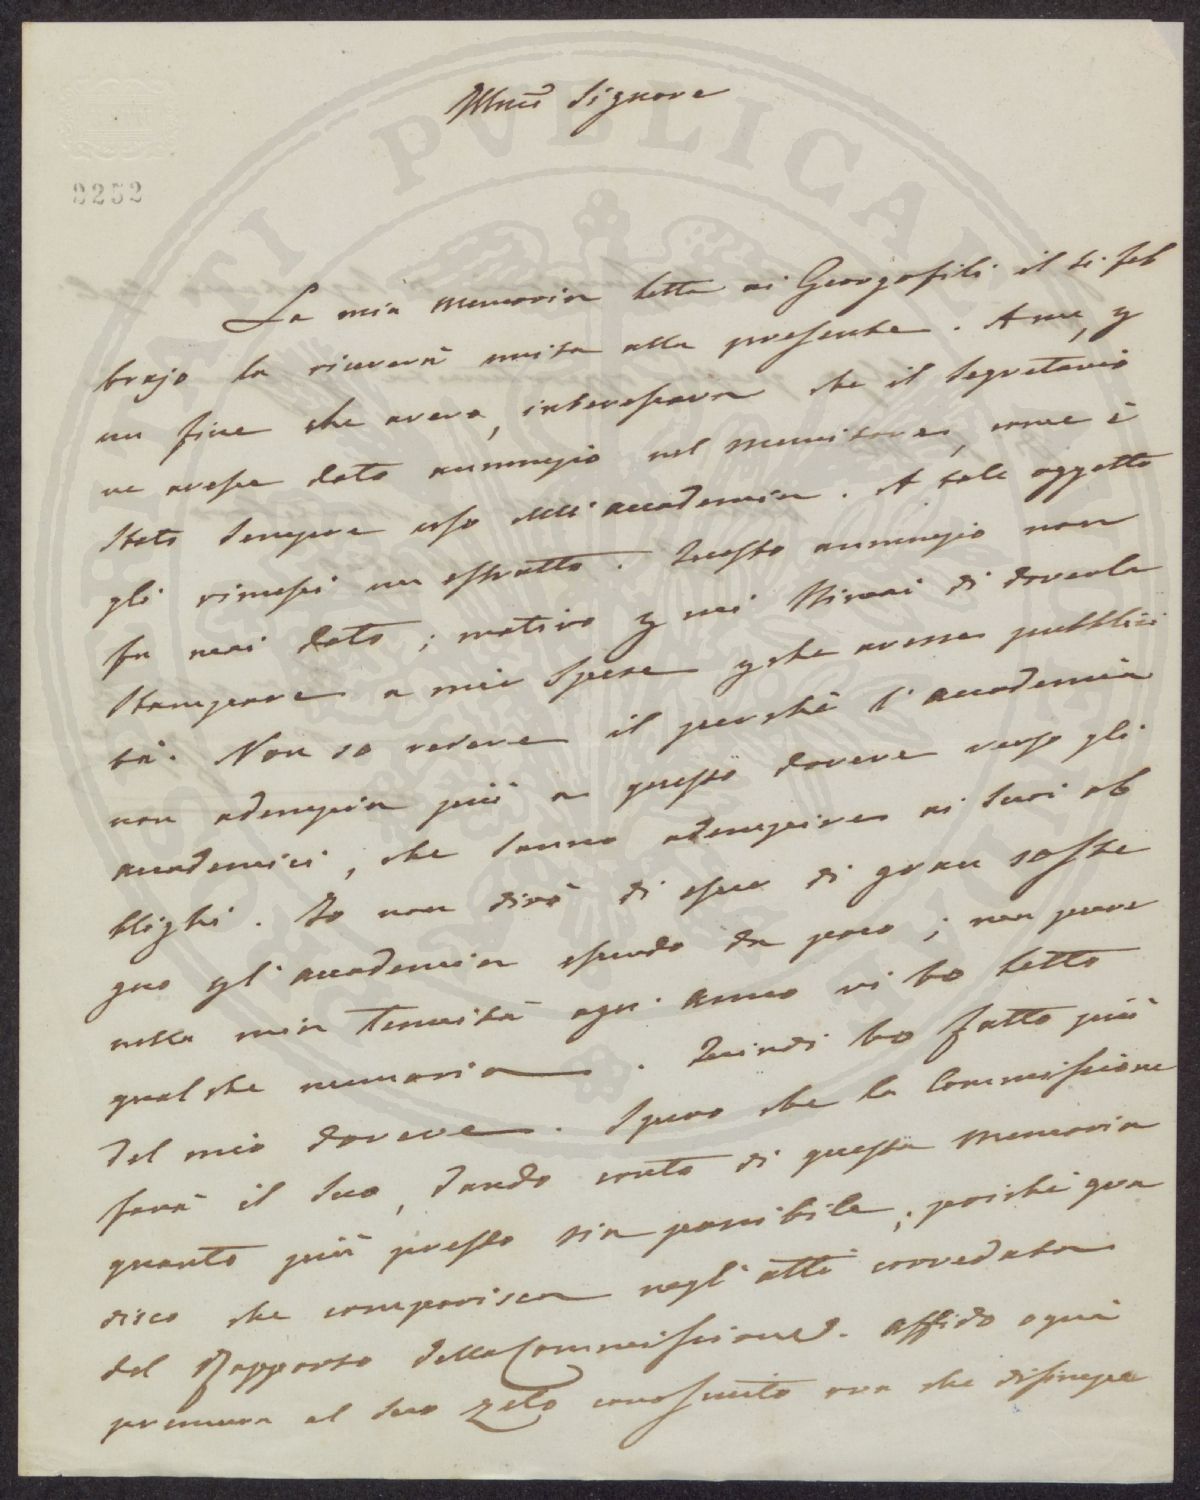 Illmo Signore
2252
La mia memoria letta ai Georgofili il di feb
brajo la riceverà unita alla presente. A me, p
un fine che aveva, interessava che il Segretario
ne avesse dato annunzio nel Monitore, come è
stato sempre uso dell'accademia. A tale oggetto
gli rimessi un estratto. Questo annunzio non
fu mai dato; motivo p cui stimai di doverla
stampare a mie spese pche avesse pubblici
tà. Non so vedere il perchè l'accademia
non adempia più a questo dovere verso gli
accademici, che sanno adempire ai suoi ob
blighi. Io non dirò di esser di gran soste
gno pl'accademia essendo da poco; ma pure
nella mia tenuità ogni anno vi ho letto
qualche memoria. Quindi ho fatto più
del mio dovere. Spero che la Commissione
farà il suo, dando conto di questa memoria
quanto più presto sia possibile; poichè gra
disco che comparisca negl'atti corredata
del Rapporto della Commissione. Affido ogni
premura al suo zelo conosciuto ora che disimpe